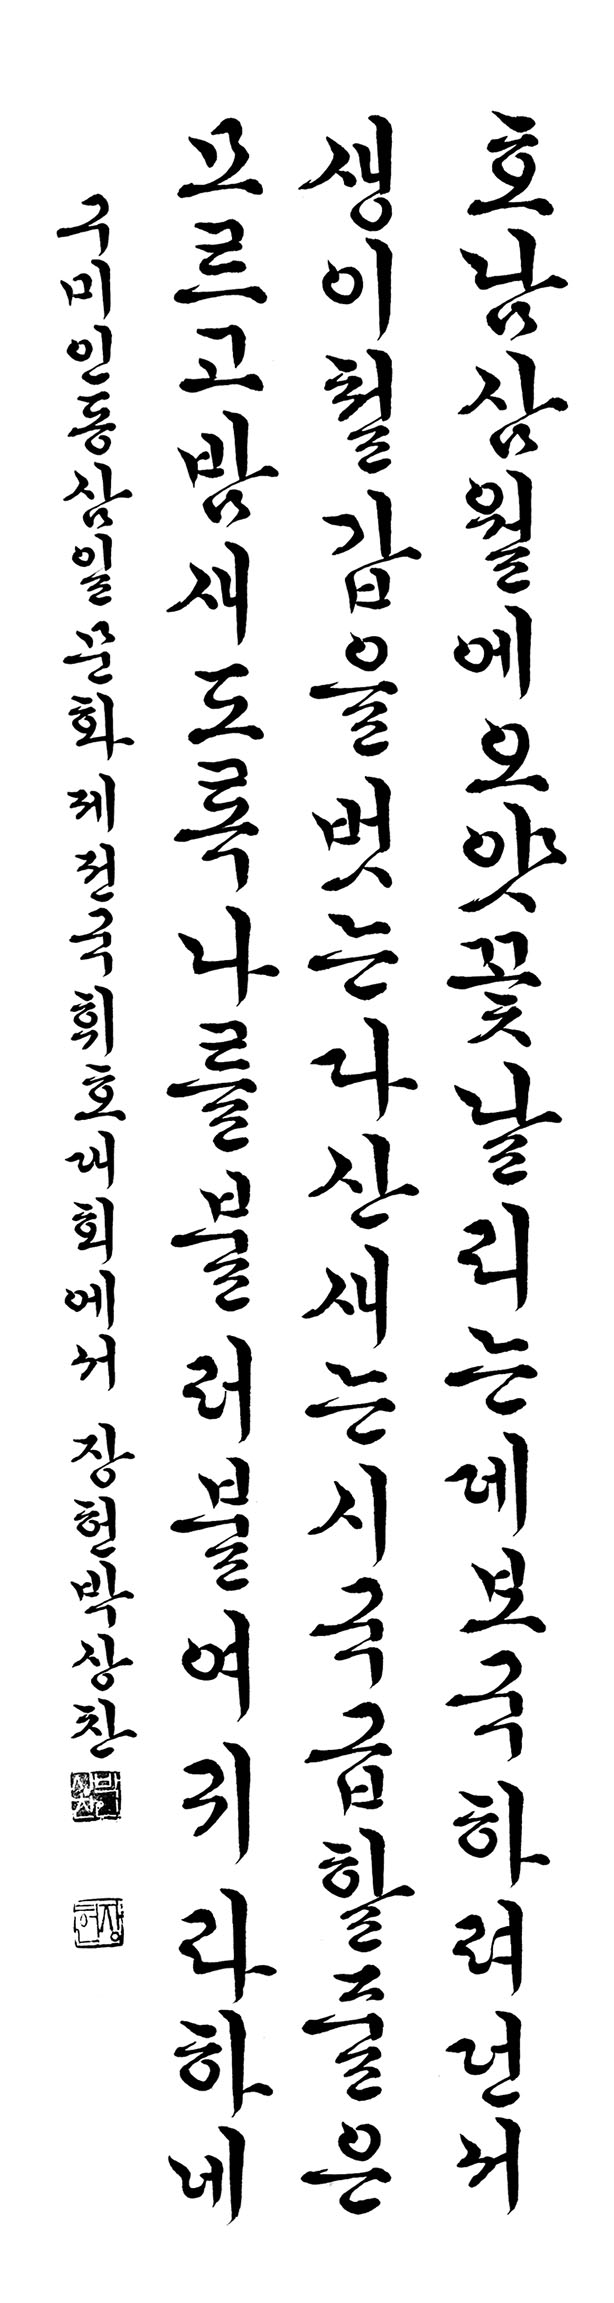 호남삼월에오얏꽃날리는데보국하려던서
생이철갑을벗는다산새는시국급할줄은
모르고밤새도록나를불러불여귀라하네
구미인동삼일문화제전국휘호대회에서 장헌박상찬
박상찬
장헌